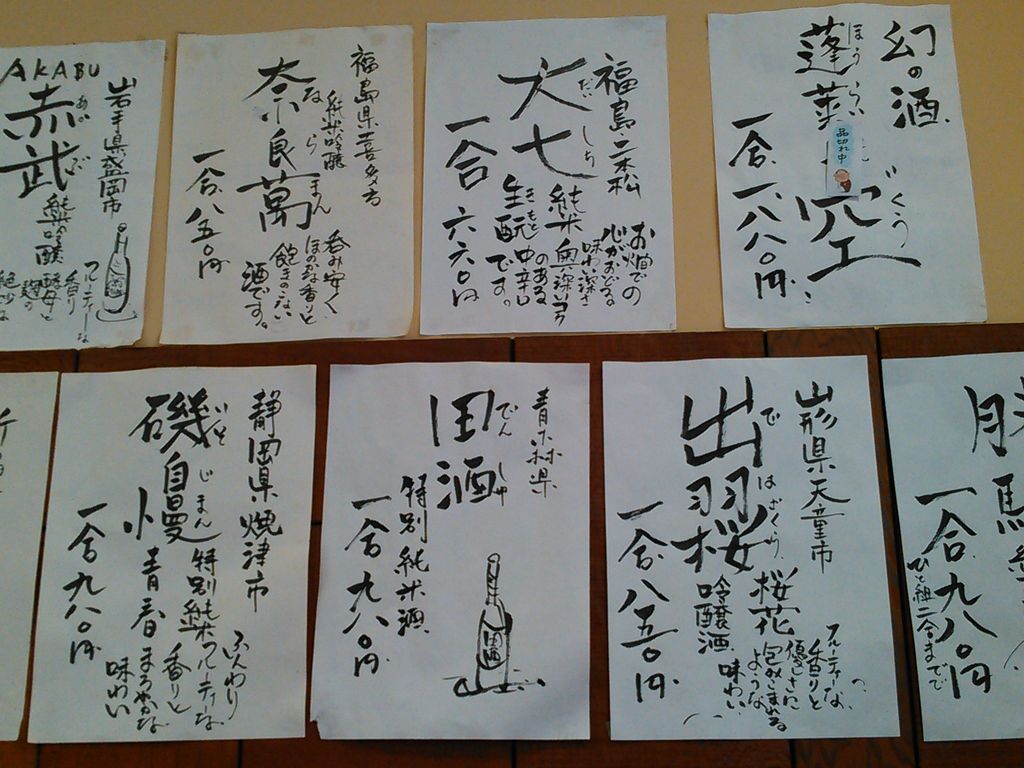 幻の酒
ほうらい
蓬莱
ごくう
空
品切れ中
一合、一、八八〇円
福島・二本松
だいしち
大七
純米
生酛中辛口
きもと
のある
です。
お燗での
心がおどる。
味わい深さ
一合 六六〇円
福島県喜多方
純米吟醸
ならまん
奈良萬
呑み安く
ほのかな香りと
飽きのこない
酒です。
一合、八五〇円
岩手県盛岡市
AKABU
あかぶ
赤武
純米吟醸
酵母と
フルーティーな
香り
勝
馬
一合、九八〇円
ひと組二合までで
山形県天童市
ではざくら
出羽桜
桜花
吟醸酒
フルーティな、
香りと
優しさに
包みこまれる
ような
味わい
一合、八五〇円
青森県
でんしゅ
田酒
特別純米酒
一合 九八〇円
田酒
静岡県焼津市
いそじまん
磯自慢
特別純米
青春
ふんわり
フルーティな
香りと
まろやかな
味わい
一合 九八〇円